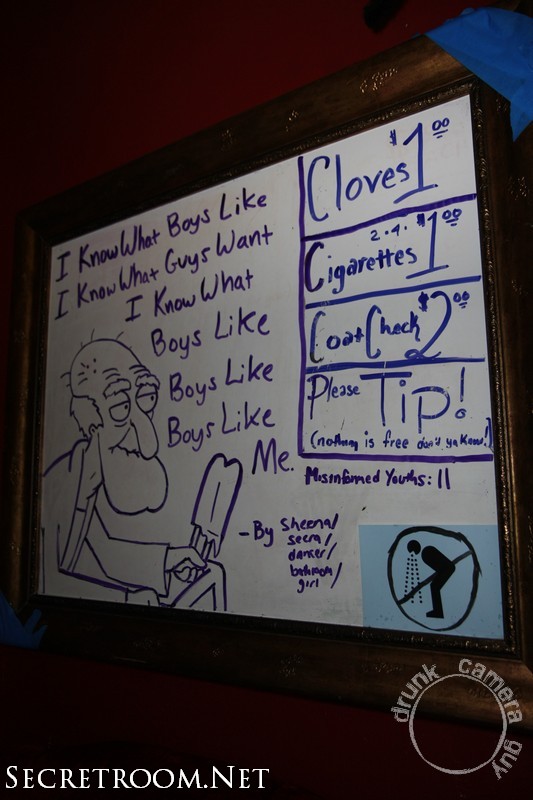 I Know What Boys Like
I Know What Guys Want
I Know What
Boys Like
Boys Like
Boys Like
Me.
Cloves $1 00
2.4.
Cigarettes $1 00
Coat Check $2 00
Please Tip!
(nothing is free don't ya know!)
Misinformed Youths: 11
- By Sheena/
secra/
dancer/
bathroom/
girl
drunk camera guy
SECRETROOM.NET